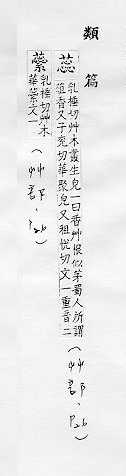 類篇
蕊 乳捶切艸木叢生皃一曰香艸根似茅蜀人所謂
葅香又子兖切華聚皃又租悦切文一重音二
(艸部、P26)
蘂 乳捶切艸木
華蘂文一
(艸部、P26)